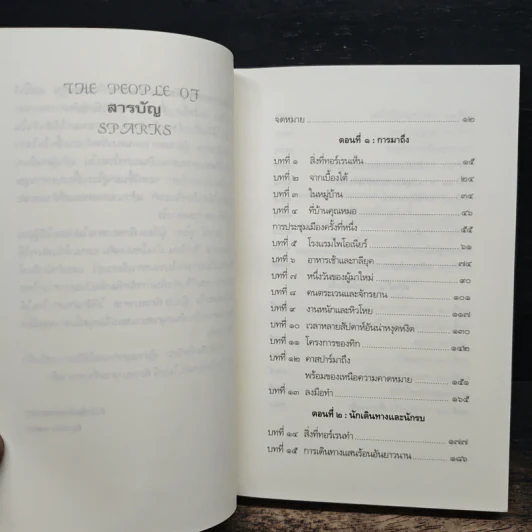 THE PEOPLE OF
สารบัญ
SPARKS
จดหมาย ๑๒
ตอนที่ ๑ : การมาถึง
บทที่ ๑ สิ่งที่ทอร์เรนเห็น ๑๕
บทที่ ๒ จากเบื้องใต้ ๒๔
บทที่ ๓ ในหมู่บ้าน ๓๔
บทที่ ๔ ที่บ้านคุณหมอ ๔๖
การประชุมเมืองครั้งที่หนึ่ง ๕๕
บทที่ ๕ โรงแรมไพโอเนียร์ ๖๑
บทที่ ๖ อาหารเช้าและกลียุค ๗๔
บทที่ ๗ หนึ่งวันของผู้มาใหม่ ๙๐
บทที่ ๘ คนตระเวนและจักรยาน ๑๐๑
บทที่ ๙ งานหนักและหิวโหย ๑๑๗
บทที่ ๑๐ เวลาหลายสัปดาห์อันน่าหงุดหงิด ๑๓๐
บทที่ ๑๑ โครงการของทิก ๑๔๒
บทที่ ๑๒ คาสปาร์มาถึง
พร้อมของเหนือความคาดหมาย ๑๕๑
บทที่ ๑๓ ลงมือทำ ๑๖๕
ตอนที่ ๒ : นักเดินทางและนักรบ
บทที่ ๑๔ สิ่งที่ทอร์เรนทำ ๑๗๗
บทที่ ๑๕ การเดินทางแสนร้อนอันยาวนาน ๑๘๖